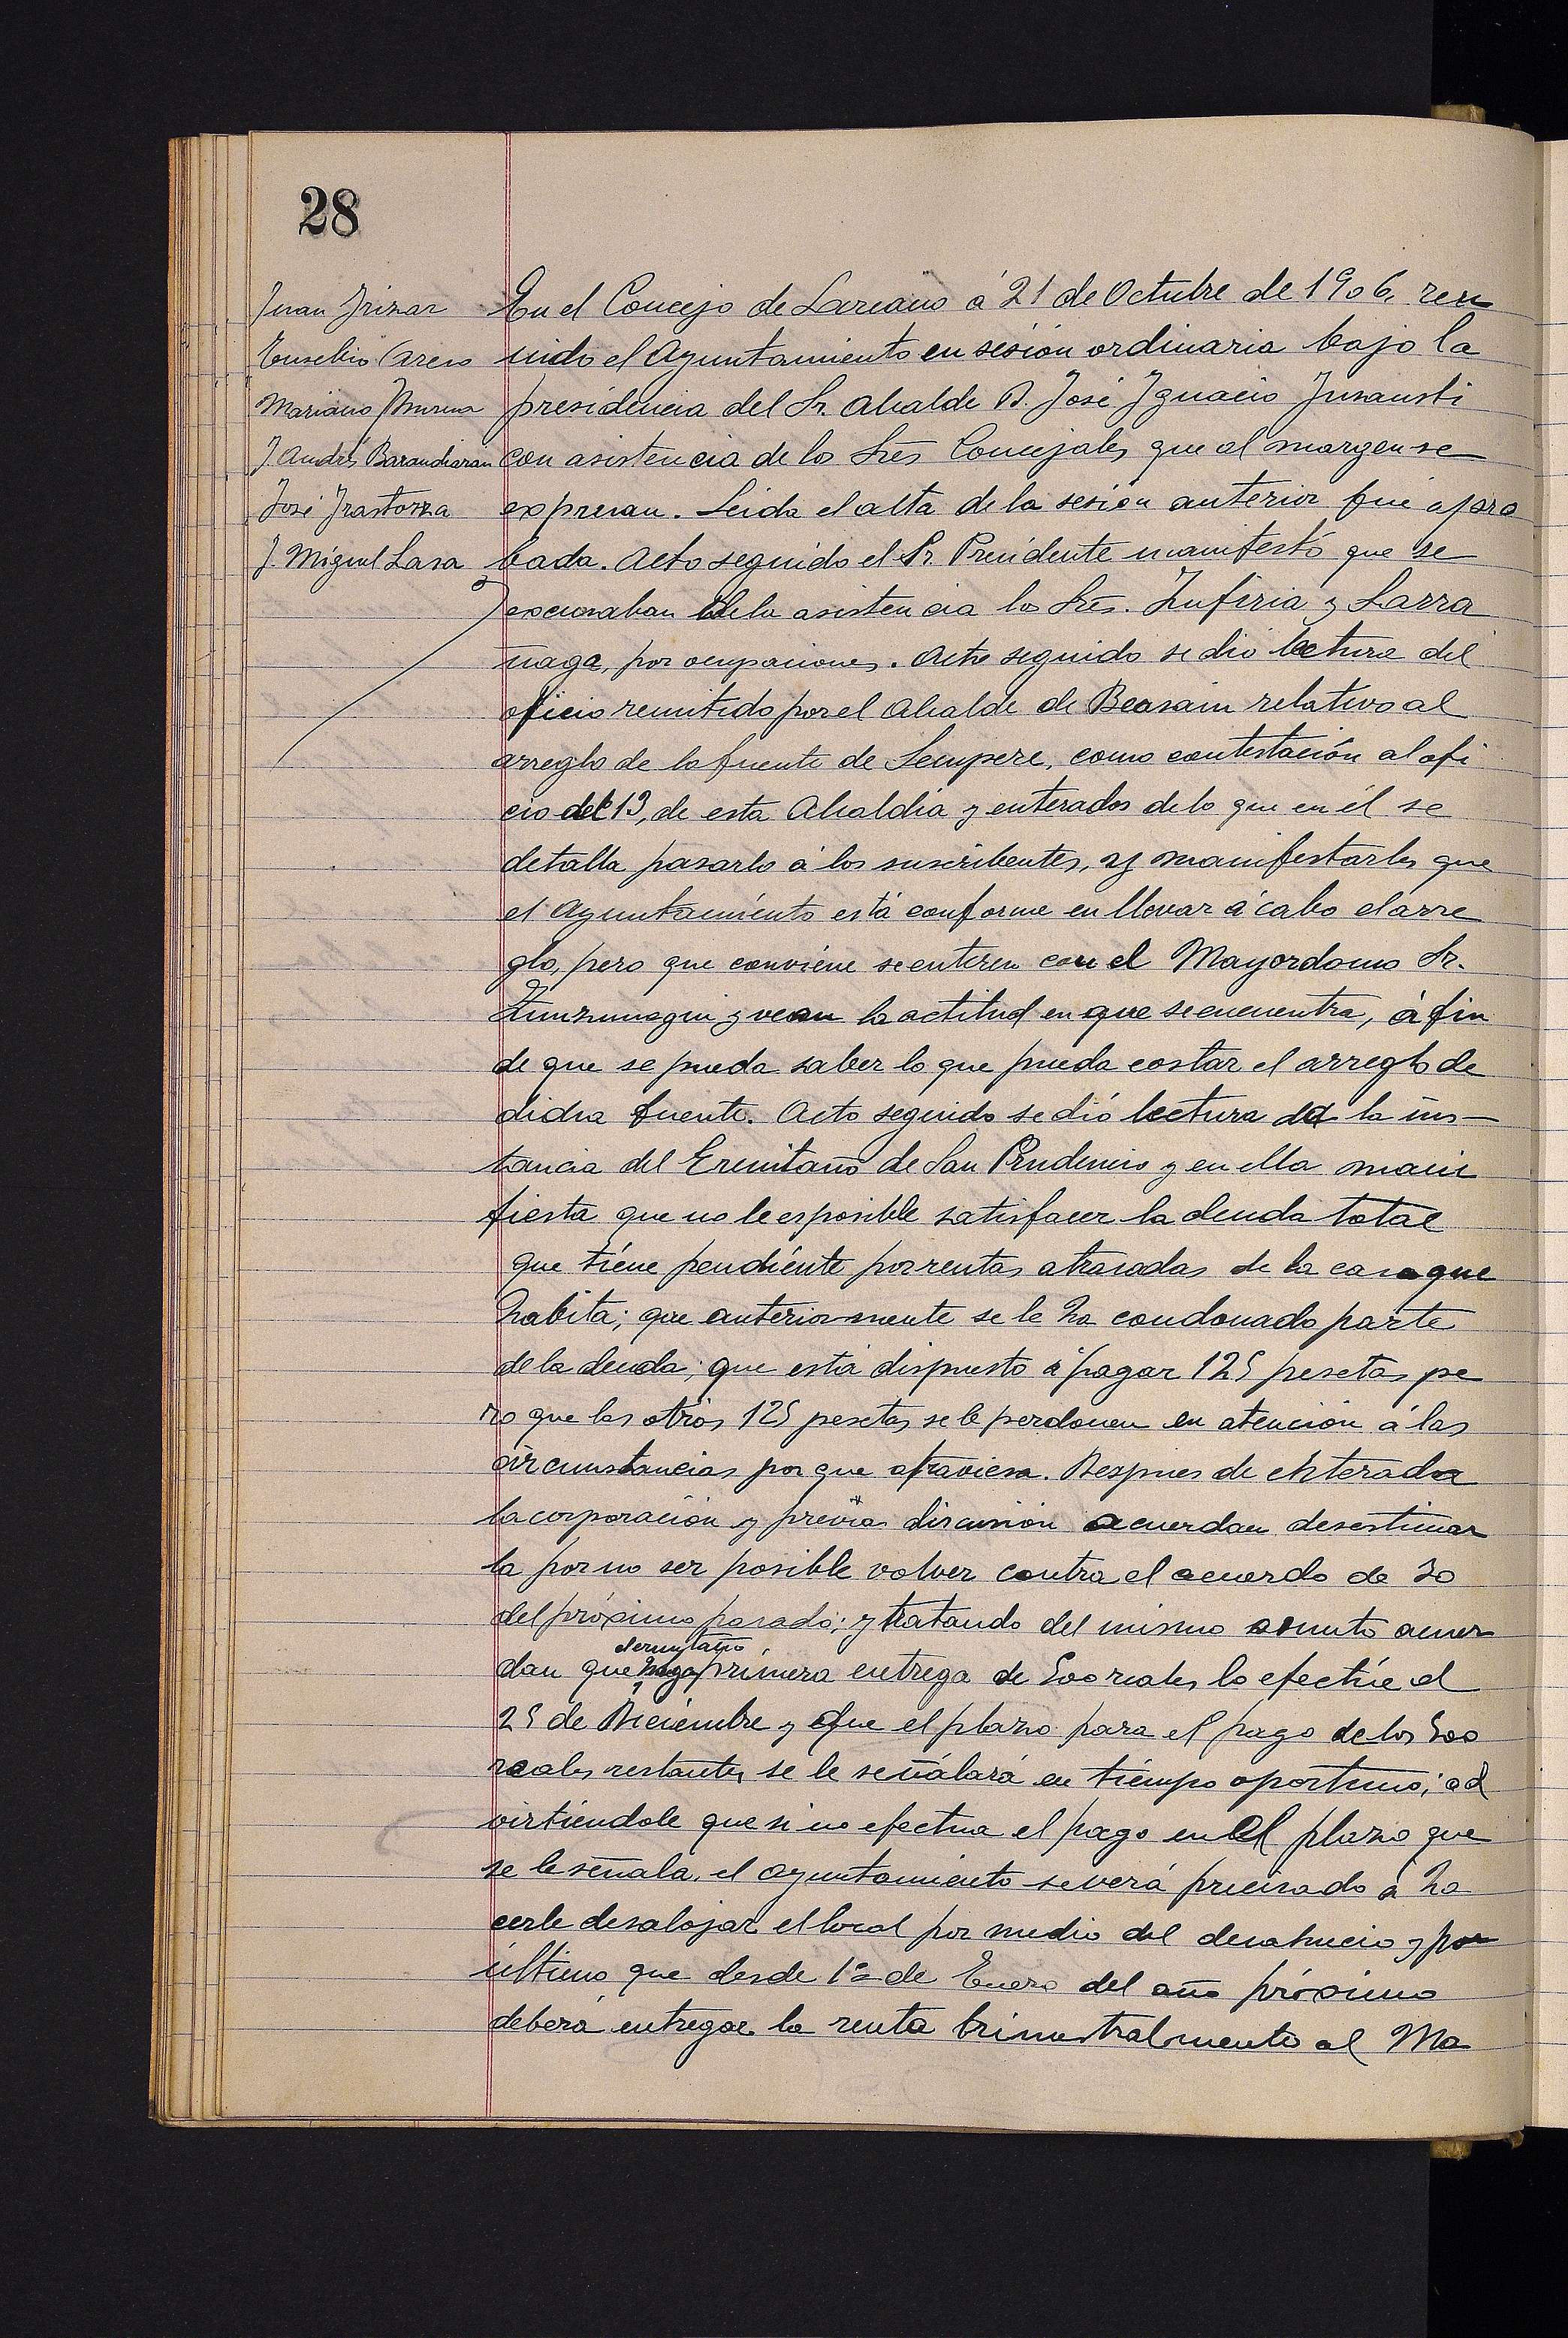 28
Juan Irizar
Eusebio Areso
Mariano Murua
J Andrés Barandiaran
José Irastorza
J. Miguel Lasa
En el Concejo de Lazcano á 21 de Octubre de 1906, reu
nido el Ayuntamiento en sesión ordinaria bajo la
presidencia del Sr. Alcalde D. José Ignacio Insausti
con asistencia de los Sres Concejales que al margen se
expresan. Leida el alta de la sesión anterior fué apro
bada. Acto seguido el Sr. Presidente manifestó que se
excusaban de la asistencia los Sres. Zufiria y Larra
ñaga, por ocupaciones. Acto seguido se dió lectura del
oficio remitido por el Alcalde de Beasain relativo al
arreglo de la fuente de Sempere, como contestación al ofi
cio del 13, de esta Alcaldía y enterados de lo que en él se
detalla pasarlo á los suscribentes, y manifestarles que
el Ayuntamiento está conforme en llevar á cabo el arre
glo, pero que conviene se enteren con el Mayordomo Sr.
y vean la actitud en que se encuentra, á fin
de que se pueda saber lo que pueda costar el arreglo de
dicha fuente. Acto seguido se dió lectura de la ins-
tancia del Ermitaño de San Prudencio y en ella mani
fiesta que no le es posible satisfacer la deuda total
que tiene pendiente por rentas atrasadas de la casa que
habita; que anteriormente se le ha condonado parte
de la deuda; que está dispuesto á pagar 125 pesetas pe
ro que las otras 125 pesetas se le perdonen en atención á las
circunstancias por que atraviesa. Despues de enterada
la corporación y previa discusión acuerdan desestimar
la por no ser posible volver contra el acuerdo de 30
del próximo pasado; y tratando del mismo asunto acuer
el ermitaño
dan que haga primera entrega de 500 reales lo efectúe el
25 de Diciembre y que el plazo para el pago de los 500
reales restantes se le señalará en tiempo oportuno; ad
virtiendole que si no efectua el pago en el plazo que
se le señala, el ayuntamiento se verá precisado á ha
cerle desalojar el local por medio del desahucio y por
último que desde 1º de Enero del año próximo
deberá entregar la renta trimestralmente al Ma